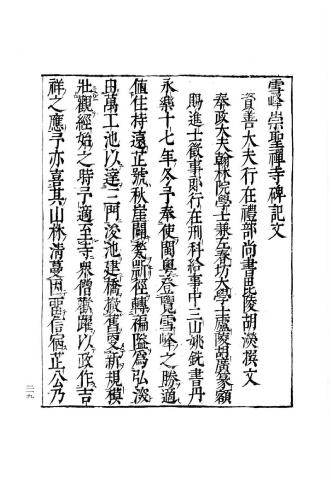 雪峰崇聖禪寺碑記文
資善大夫行在禮部尚書毘陵胡濙撰文
奉政大夫翰林院學士兼左春坊大學士廬陵胡廣篆額
賜進士徵事郎行在刑科給事中三山姚銑書丹
永樂十七年冬予奉使閩粵登覽雪峰之勝適
值住持遠芷號秋崖闢榛翳徑轉福隘為弘淡
毋萬工池以達三門浚池建橋嶽舊更新規模
壯觀經始之時予適至寺眾僧歡躍以政作吉
祥之應予亦喜其山林清蔓因留信宿芷公乃
二一九